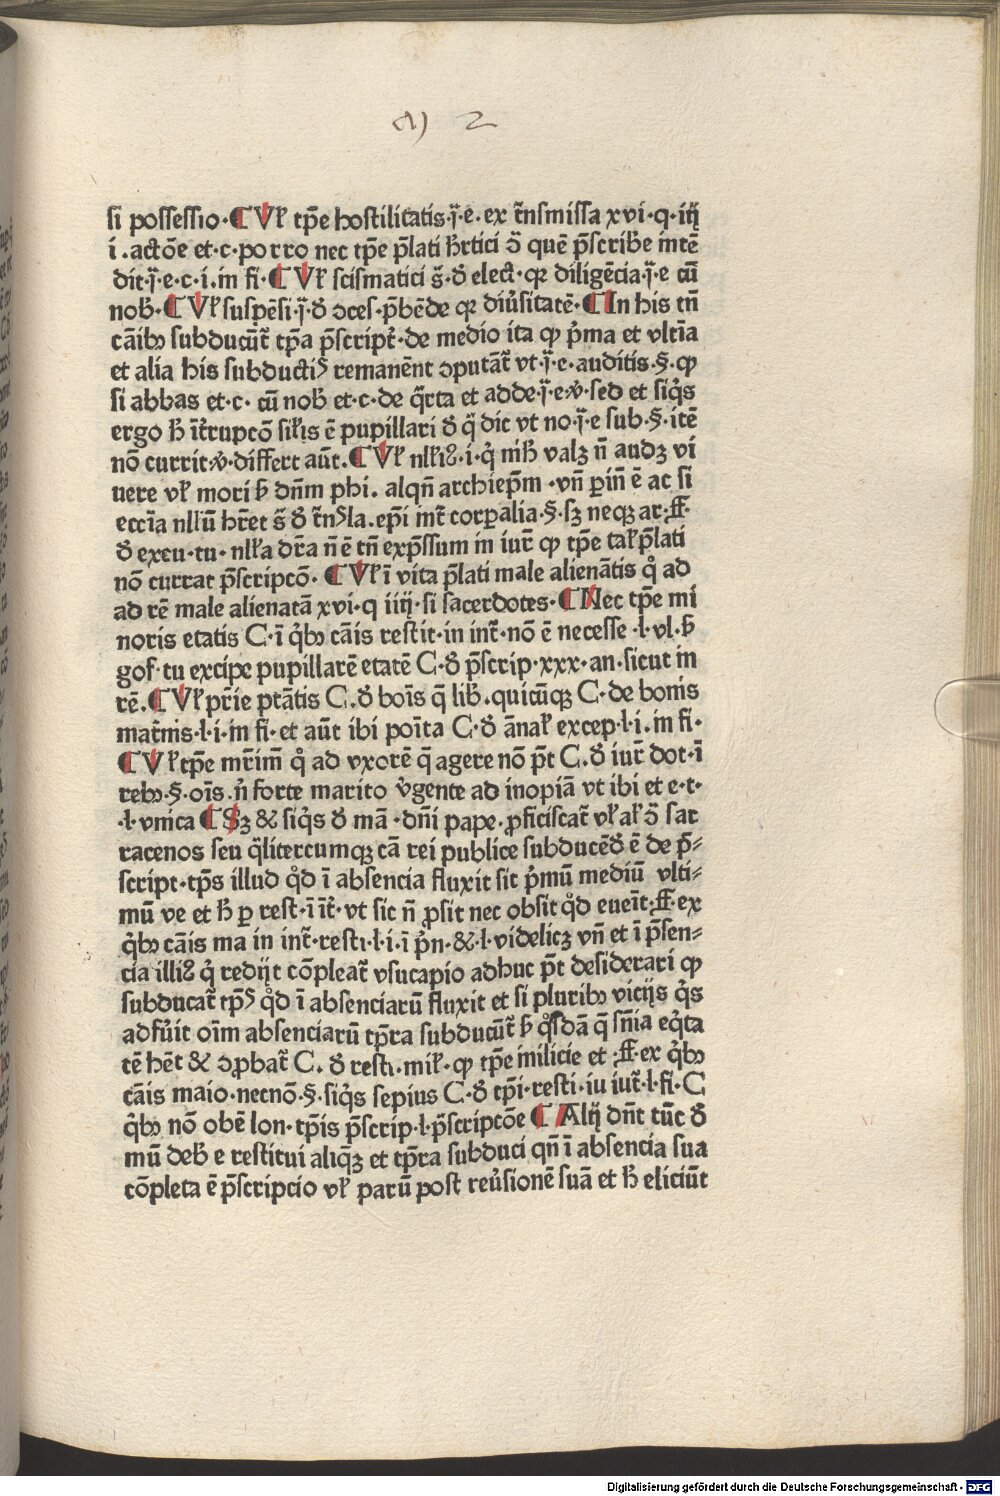 si possessio·¶Vꝉ tp̄e hostilitatis·j̈·e·ex t̄nsmissa xvi·q·iiij
i·actōe et·c·porro nec tp̄e p̄lati h̄rtici ↄ̄ quē p̄scrib̄e intē
dit·j̈·e·c·i·in fi·¶Vꝉ scismatici s̈·ð elect·qꝛ diligēcia·j̈·e cū
nob̄·¶Vꝉ suspēsi·j̈·ð ↄces·p̄bēde qꝛ diu̓sitatē·¶In his tn̄
cāibꝫ subducūt̄ tp̄a p̄script̄·de medio ita ꝙ p̓ma et vltīa
et alia his subductiꝰ remanēnt ↄputāt̄ vt·j̈·e·auditis·§·ꝙ
si abbas et·c·cū nob̄ et·c·de q̈rta et adde·j̈·e·v̓·sed et siq̓s
ergo h̄ īt̄rupcō siꝉis ē pupillari ð q̈ dic vt no·j̈·e sub·§·itē
nō currit·v̓·differt aūt·¶Vꝉ nꝉliꝰ·i·q̓ m̓h̄ valꝫ n̄ audꝫ vi
uere vꝉ mori ẜ dn̄m phi·alqn̄ archiep̄m·vn̄ ꝑin̄ ē ac si
eccīa nꝉlū hr̄et s̈ ð t̄nsꝰla·ep̄i int̄ corꝑalia·§·sꝫ neqꝫ ar·ff·
ð excu·tu·nꝉla dr̄a n̄ ē tn̄ exp̄ssum in iur̄ ꝙ tp̄e taꝉ p̄lati
nō currat p̄scripcō·¶Vꝉ ī vita p̄lati male alienātis q̊ ad
ad rē male alienatā xvi·q iiij·si sacerdotes·¶Nec tp̄e mi
noris etatis C·ī q̓bꝫ cāis restit·in int̄·nō ē necesse·l·vl·ẜ
gof·tu excipe pupillarē etatē C·ð p̄scrip·xxx·an·sicut in
rē·¶Vꝉ pr̄ie ptātis C·ð boīs q̄ lib̄·quicūqꝫ C·de bonis
mat̄nis·l·i·in fi·et aūt ibi poīta C·ð ānaꝉ excep·l·i·in fi·
¶Vꝉ tp̄e mr̄im̄ q̊ ad vxorē q̄ agere nō pt̄ C·ð iur̄ dot·ī
rebꝫ·§·oīs·n̓ forte marito v̓gente ad inopiā vt ibi et e·t·
·l·vnica ¶Sꝫ & siq̓s ð mā·dn̄i pape·ꝓficiscat̄ vꝉ aꝉ ↄ̄ sar
racenos seu q̈litercumqꝫ cā rei publice subducēð ē de p̄⸗
script·tp̄s illud q̊d ī absencia fluxit sit p̓mū mediū vlti⸗
mū ve et h̄ ꝑ rest·ī īt̄·vt sic n̄ ꝓsit nec obsit q̊d eueīt·ff·ex
q̓bꝫ cāis ma in int̄·resti·l·i·ī p̓n·&·l·videlicꝫ vn̄ et ī p̄sen⸗
cia illiꝰ q̓ redijt cōpleat̄ vsucapio adhuc pt̄ desiderari ꝙ
subducat̄ tp̄ꝰ q̊d ī absenciarū fluxit et si pluribꝫ vicijs q̓s
adfu̓it oīm absenciarū tp̄ra subducūt̄ ẜ q̊sdā q̄ sn̄ia eq̓ta
tē hēt & ↄꝓbat̄ C·ð resti·miꝉ·ꝙ tp̄e imilicie et·ff·ex q̓bꝫ
cāis maio·necnō·§·siq̓s sepius C·ð tp̄i·resti·iu iut̄·l·fi·C
q̓bꝫ nō obē lon·tp̄is p̄scrip·l·p̄scripcōe ¶Alij dn̄t tūc ð
mū deb̄ e restitui aliq̄ꝫ et tp̄ra subduci qn̄ ī absencia sua
cōpleta ē p̄scripcio vꝉ parū post reu̓sionē suā et h̄ eliciūt
Digitalisierung gefördert durch die Deutsche Forschungsgemeinschaft - DFG